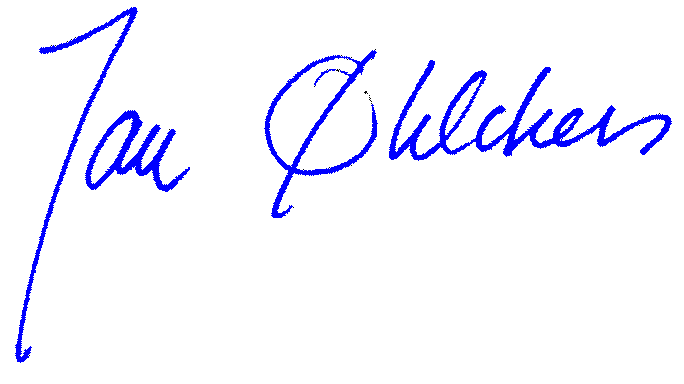 Jan Øhlckers